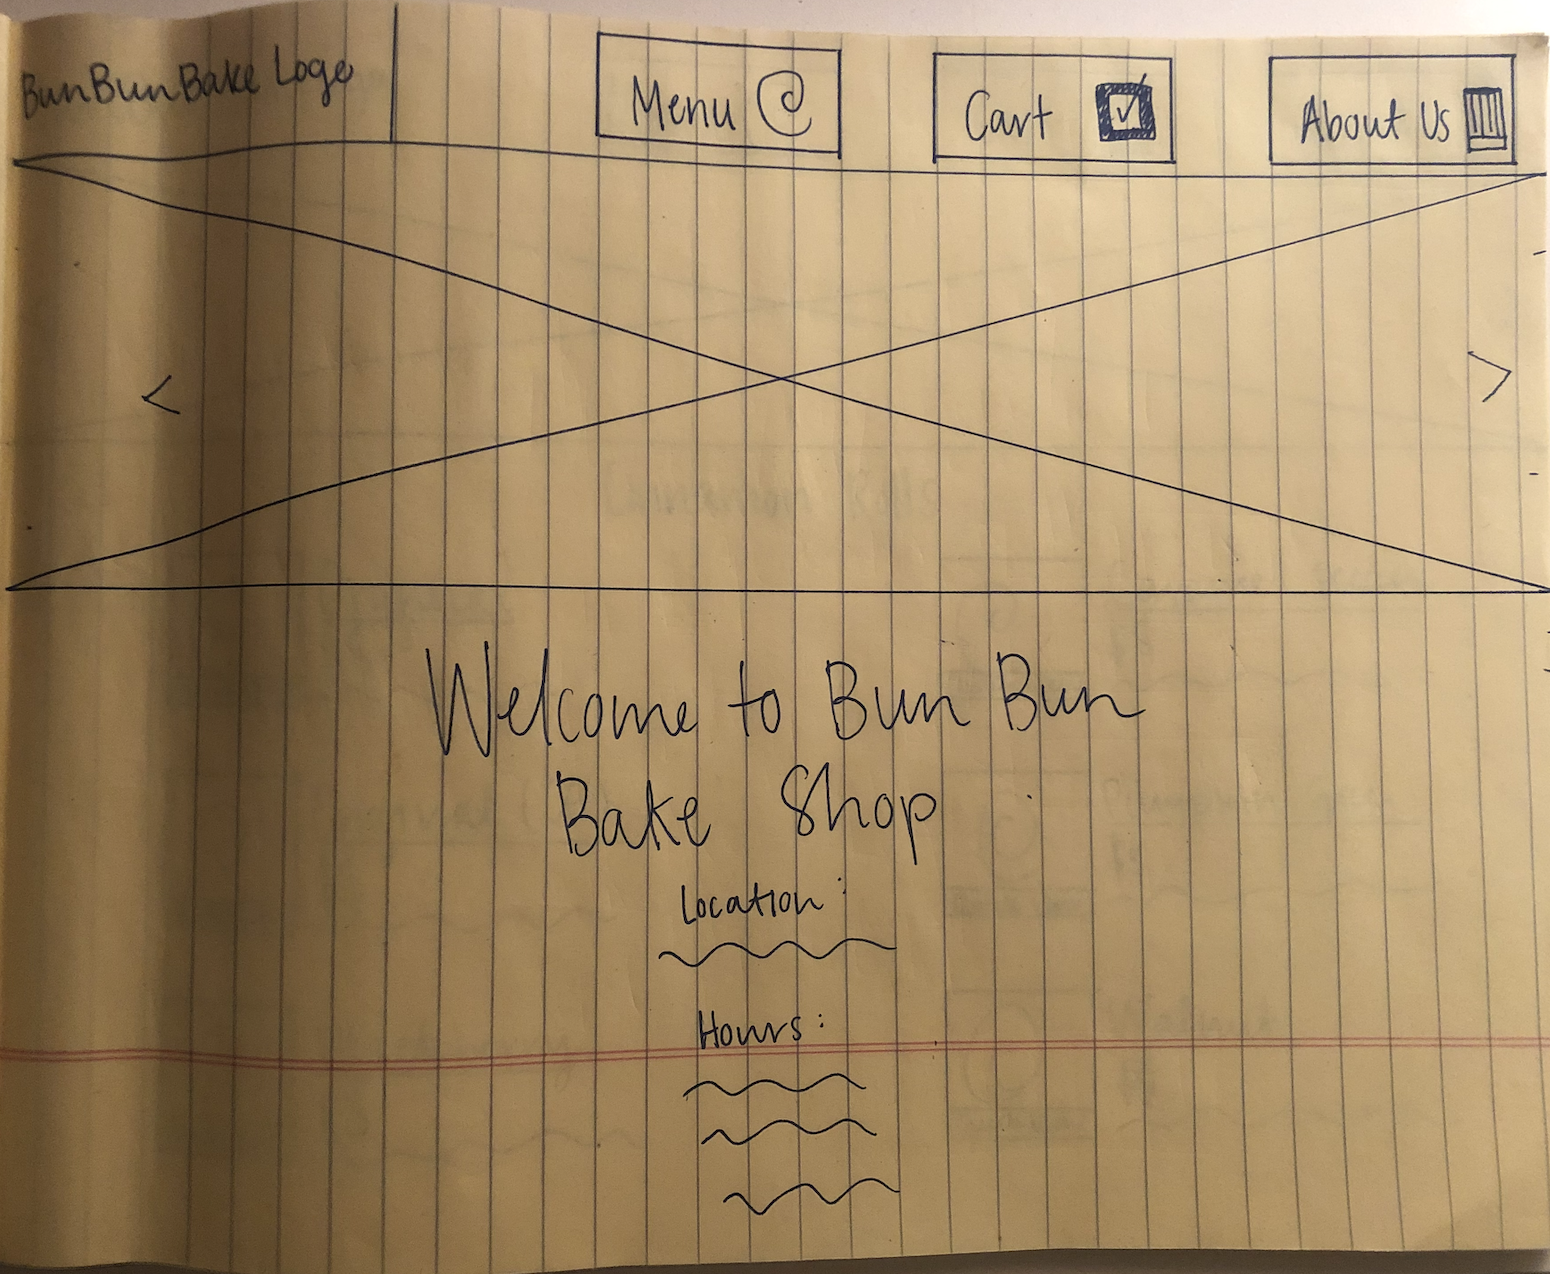 BunBunBake Logo
Menu
Cart
About Us
<
>
Welcome to Bun Bun
Bake Shop
Location:
Hours: